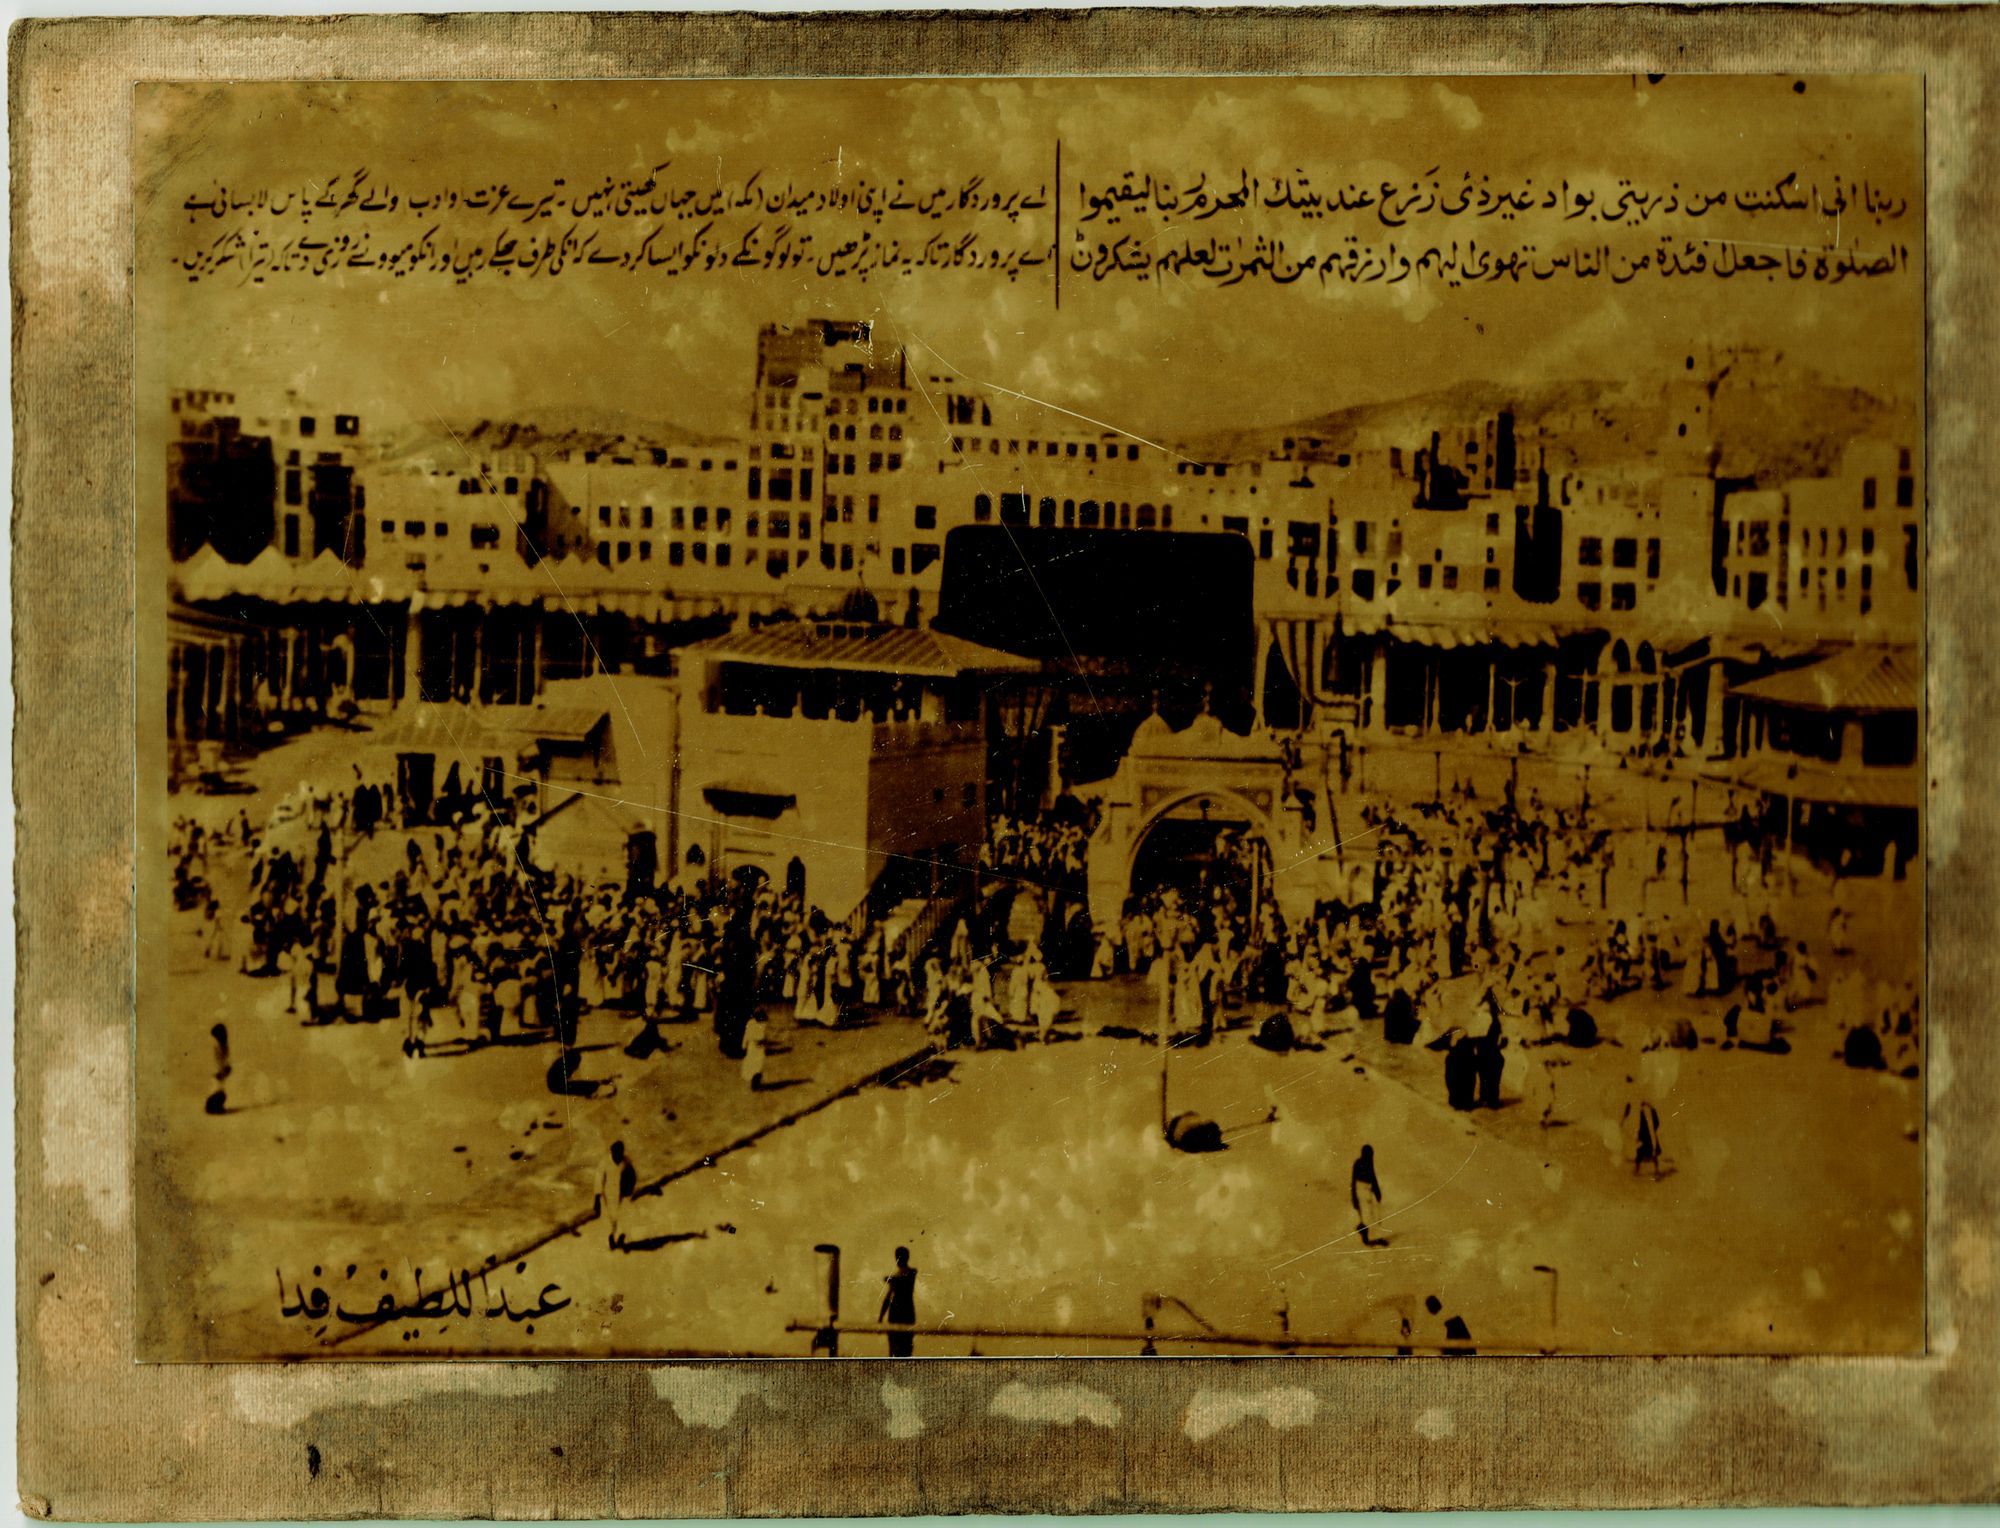 ربنا انی اسکنت من ذریتی بواد غیرذی زَرع عند بیتك المحرم ربنا لیقیموا
الصلٰوة فاجعل افئدة من الناس تهوی الیهم وارزقهم من الثمرٰت لعلهم یشکرون
اے پروردگار میں نے اپنی اولاد میدان (مکہ) میں جہاں کھیتی نہیں۔ تیرے عزت وادب والے گھر کے پاس لا بسائی ہے
اے پروردگار تاکہ یہ نماز پڑھیں۔ تو لوگونکے دلونکو ایسا کردے کہ انکی طرف جھکے رہیں اور انکو میوونسے روزی دے تاکہ (تیرا) شکر کریں۔
عبداللطیف فِدا